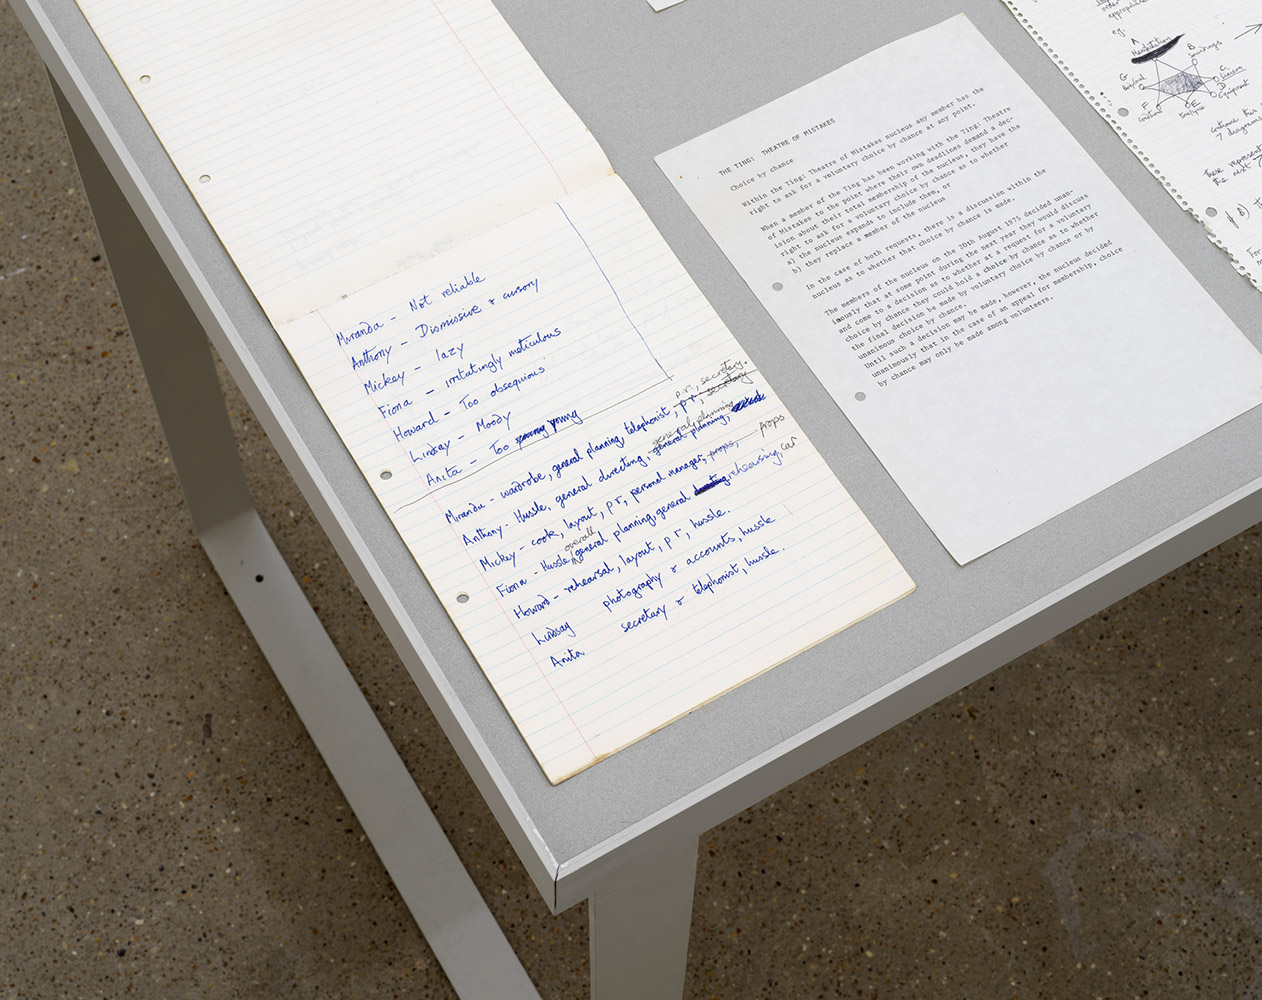 Miranda - Not reliable
Anthony - Dismissive & cursory
Mickey - lazy
Fiona - irritatingly meticulous
Howard - Too obsequious
Lindsay - Moody
Anita - Too young
p.r., secretary.
Miranda - wardrobe, general planning, telephonist, pr, secretary
general planning
Anthony - Hussle, general directing, general planning,
Mickey - cook, layout, pr, personal manager, props, props
overall
Fiona - Hussle, general planning, general rehearsing, car
Howard - rehearsal, layout, pr, hussle.
Lindsay photography & accounts, hussle
Anita secretary & telephonist, hussle.
THE TING: THEATRE OF MISTAKES
Choice by chance
Within the Ting: Theatre of Mistakes nucleus any member has the
right to ask for a voluntary choice by chance at any point.
When a member of the Ting has been working with the Ting: Theatre
of Mistakes to the point where their own deadlines demand a dec-
ision about their total membership of the nucleus, they have the
right to ask for a voluntary choice by chance as to whether
a) the nucleus expands to include them, or
b) they replace a member of the nucleus
In the case of both requests, there is a discussion within the
nucleus as to whether that choice by chance is made.
The members of the nucleus on the 20th August 1975 decided unan-
imously that at some point during the next year they would discuss
and come to a decision as to whether at a request for a voluntary
choice by chance they could hold a choice by chance as to whether
the final decision be made by voluntary choice by chance or by
unanimous choice by chance.
Until such a decision may be made, however, the nucleus decided
unanimously that in the case of an appeal for membership, choice
by chance may only be made among volunteers.
order
appropriate
eg.
A
Manifestation
B
Soundings
C.
D
Equipment
E
F
G
continue this
7 diagrams
These represent
the next 7